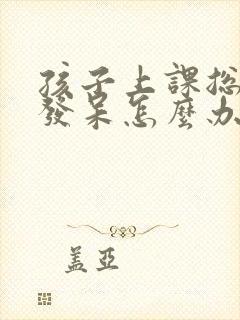 孩子上課總
發呆怎麼办
蓋亞